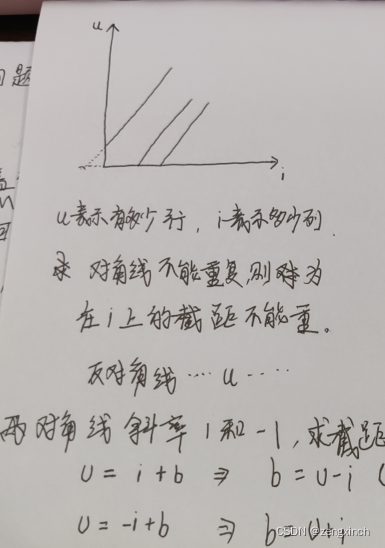 u
i
问题
u表示有多少行，i表示多少列.
求 对角线不能重复,则称为
在i上的截距不能重。
反对角线‥‥u‥‥‥
两对角线斜率1和-1,求截距
U = i + b ⇒ b = U - i (
U = -i + b ⇒ b = U + i
CSDN @zengxinch